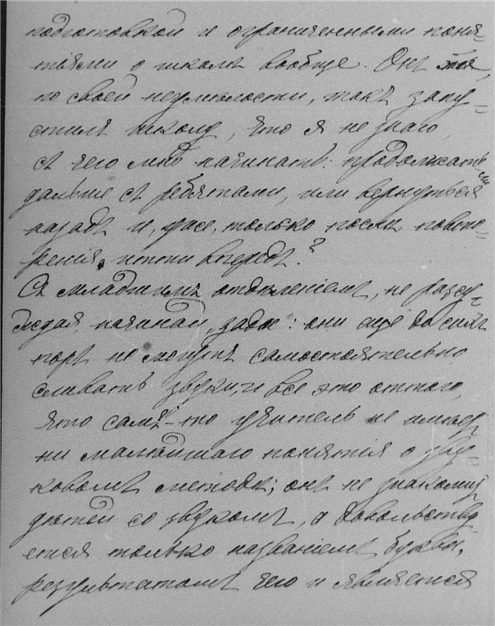 подготовкой и ограниченными поня-
тіями о школѣ вообще. Онъ
по своей неумѣлости, такъ запу-
стилъ школу, что я не знаю,
съ чего мнѣ начинать: продолжать ли
дальше съ ребятами, или вернуться
назадъ и, уже, только послѣ повто-
ренія, итти впередъ?
Съ младшимъ отдѣленіемъ, не разсу-
ждая, начинай „зады": они еще до сихъ
поръ не могутъ самостоятельно
сливать звуки, и все это оттого,
что самъ-то учитель не имѣетъ
ни малѣйшаго понятія о зву-
ковомъ методѣ; онъ не знакомитъ
дѣтей со звукомъ, а довольству-
ется только названіемъ буквы,
результатомъ чего и является